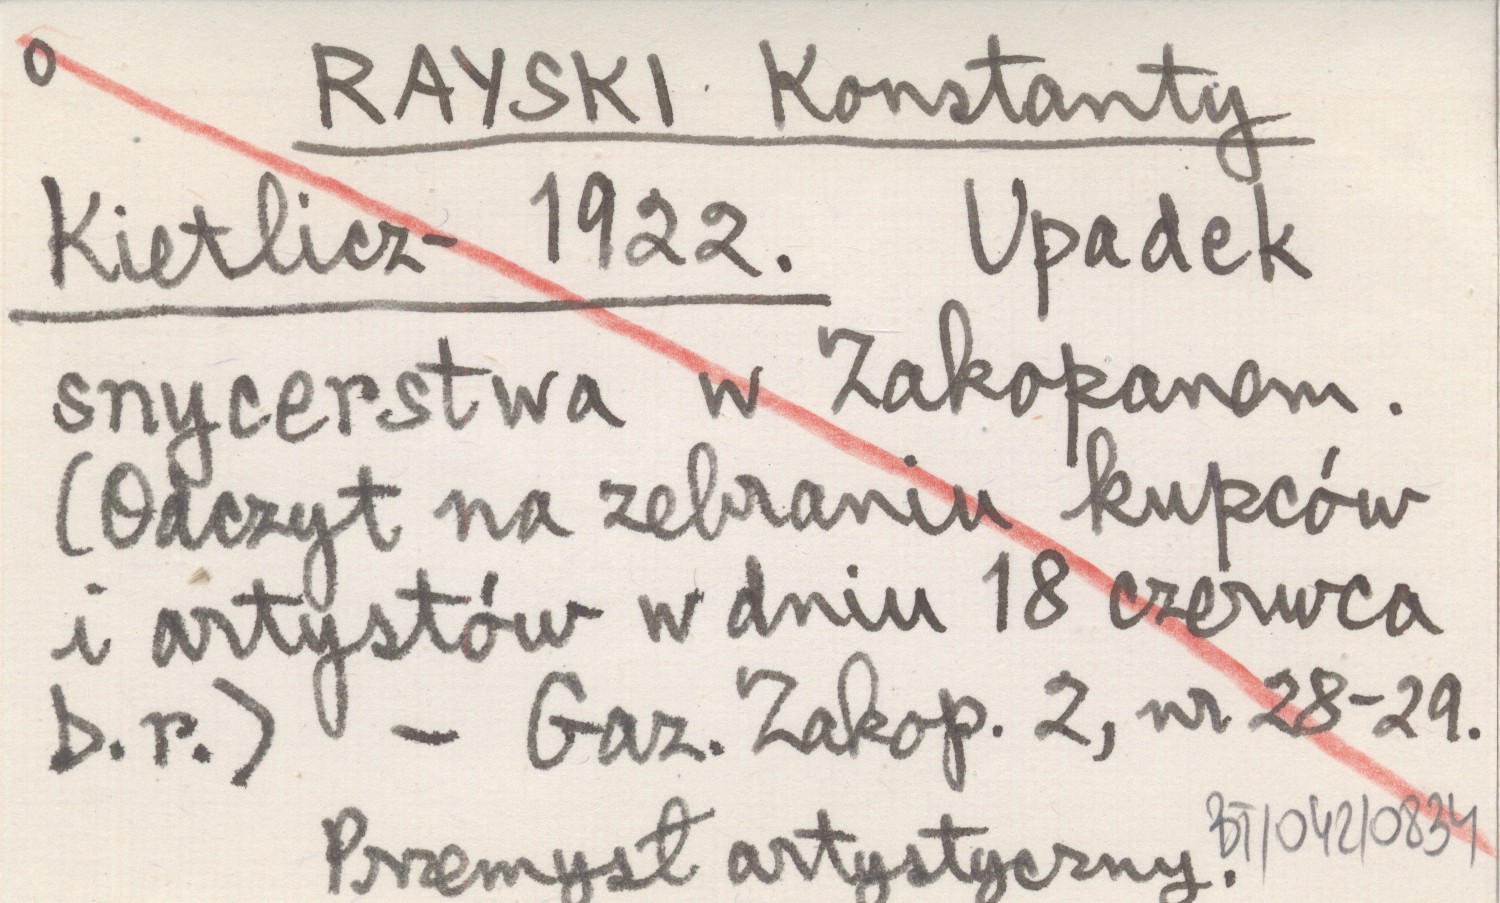 o RAYSKI Konstanty
Kietlicz- 1922. Upadek
snycerstwa w Zakopanem.
(Odczyt na zebraniu kupców
i artystów w dniu 18 czerwca
b.r.) – Gaz. Zakop. 2, nr 28-29.
Przemysł artystyczny.
BT/042/0834